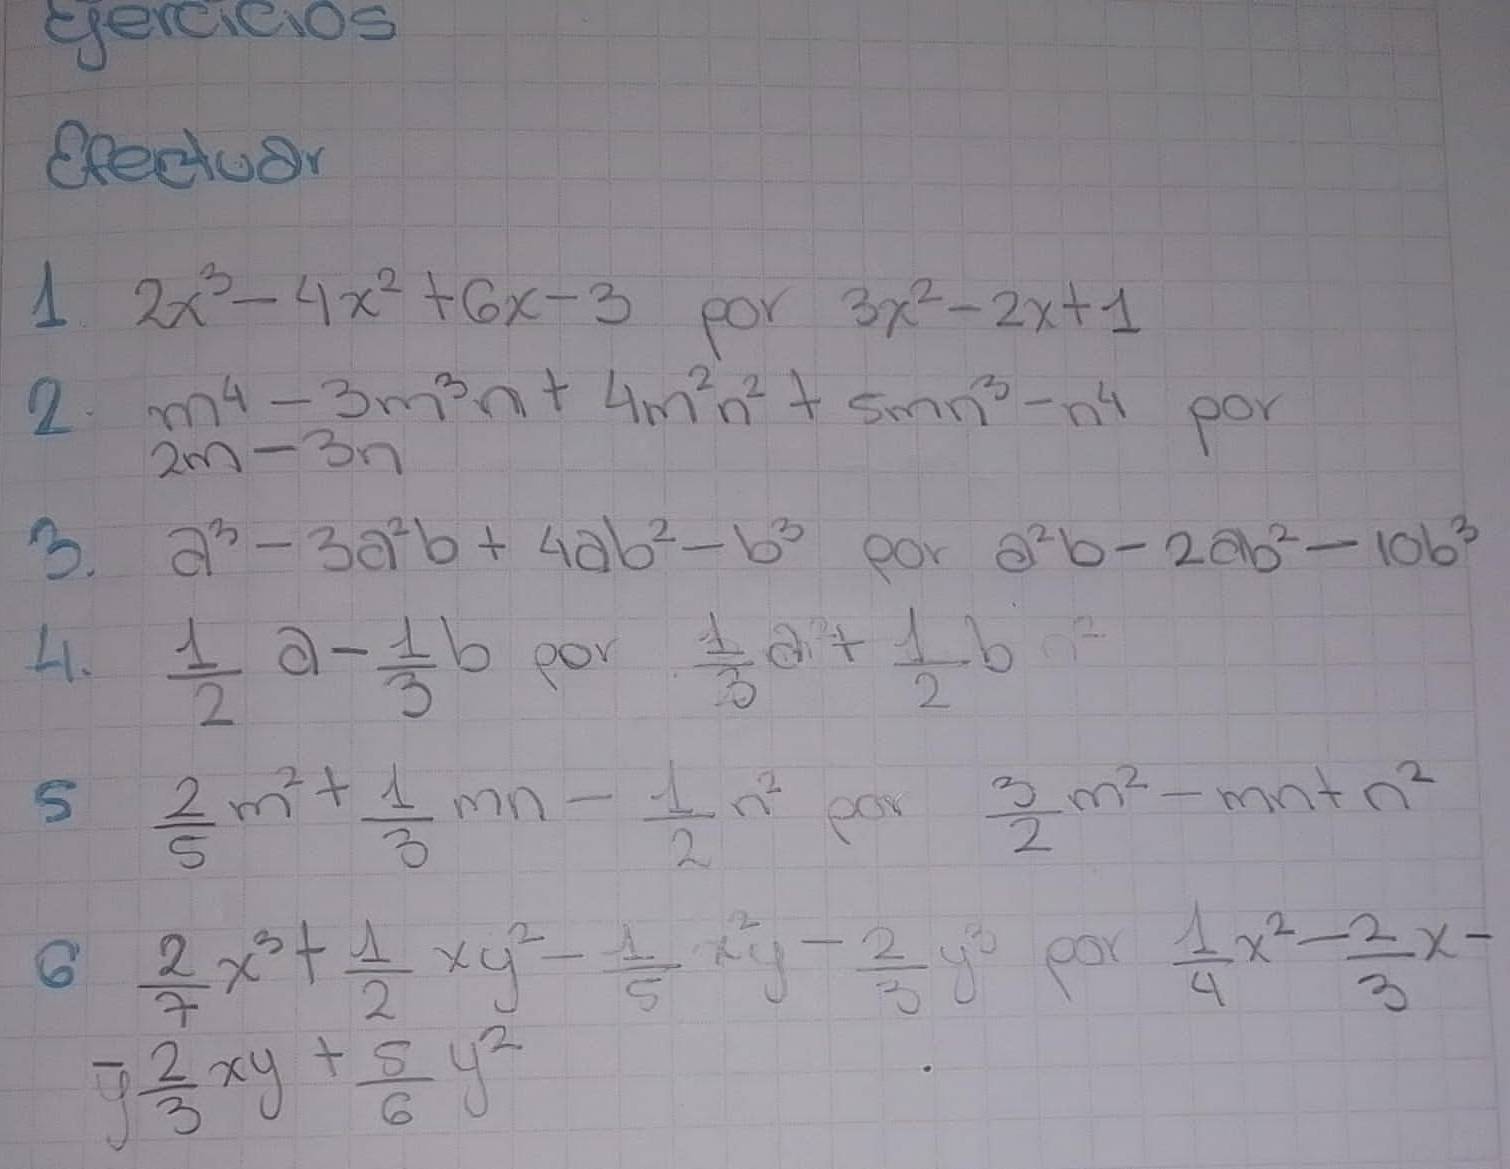 Ejercicios
Efectuar
1. 2x³ - 4x² + 6x - 3 por 3x² - 2x + 1
2. m⁴ - 3m³n + 4m²n² + 5mn³ - n⁴ por
2m - 3n
3. a³ - 3a²b + 4ab² - b³ por a²b - 2ab² - 10b³
4. 1/2 a - 1/3 b por 1/3 a² + 1/2 b
5 2/5 m² + 1/3 mn - 1/2 n² por 3/2 m² - mn + n²
6 2/7 x³ + 1/2 xy² - 1/5 x²y - 2/3 y³ por 1/4 x² - 2/3 x -
- 2/3 xy + 5/6 y²